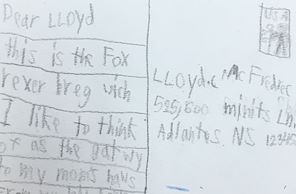 Dear LLOyd
this is the Fox
rexer breg wich
I like to think
of as the gatwy
to my moms haws
USA
LLOyd.c McFredrec
525,600 minits Ln
Adlantos. NS 12345